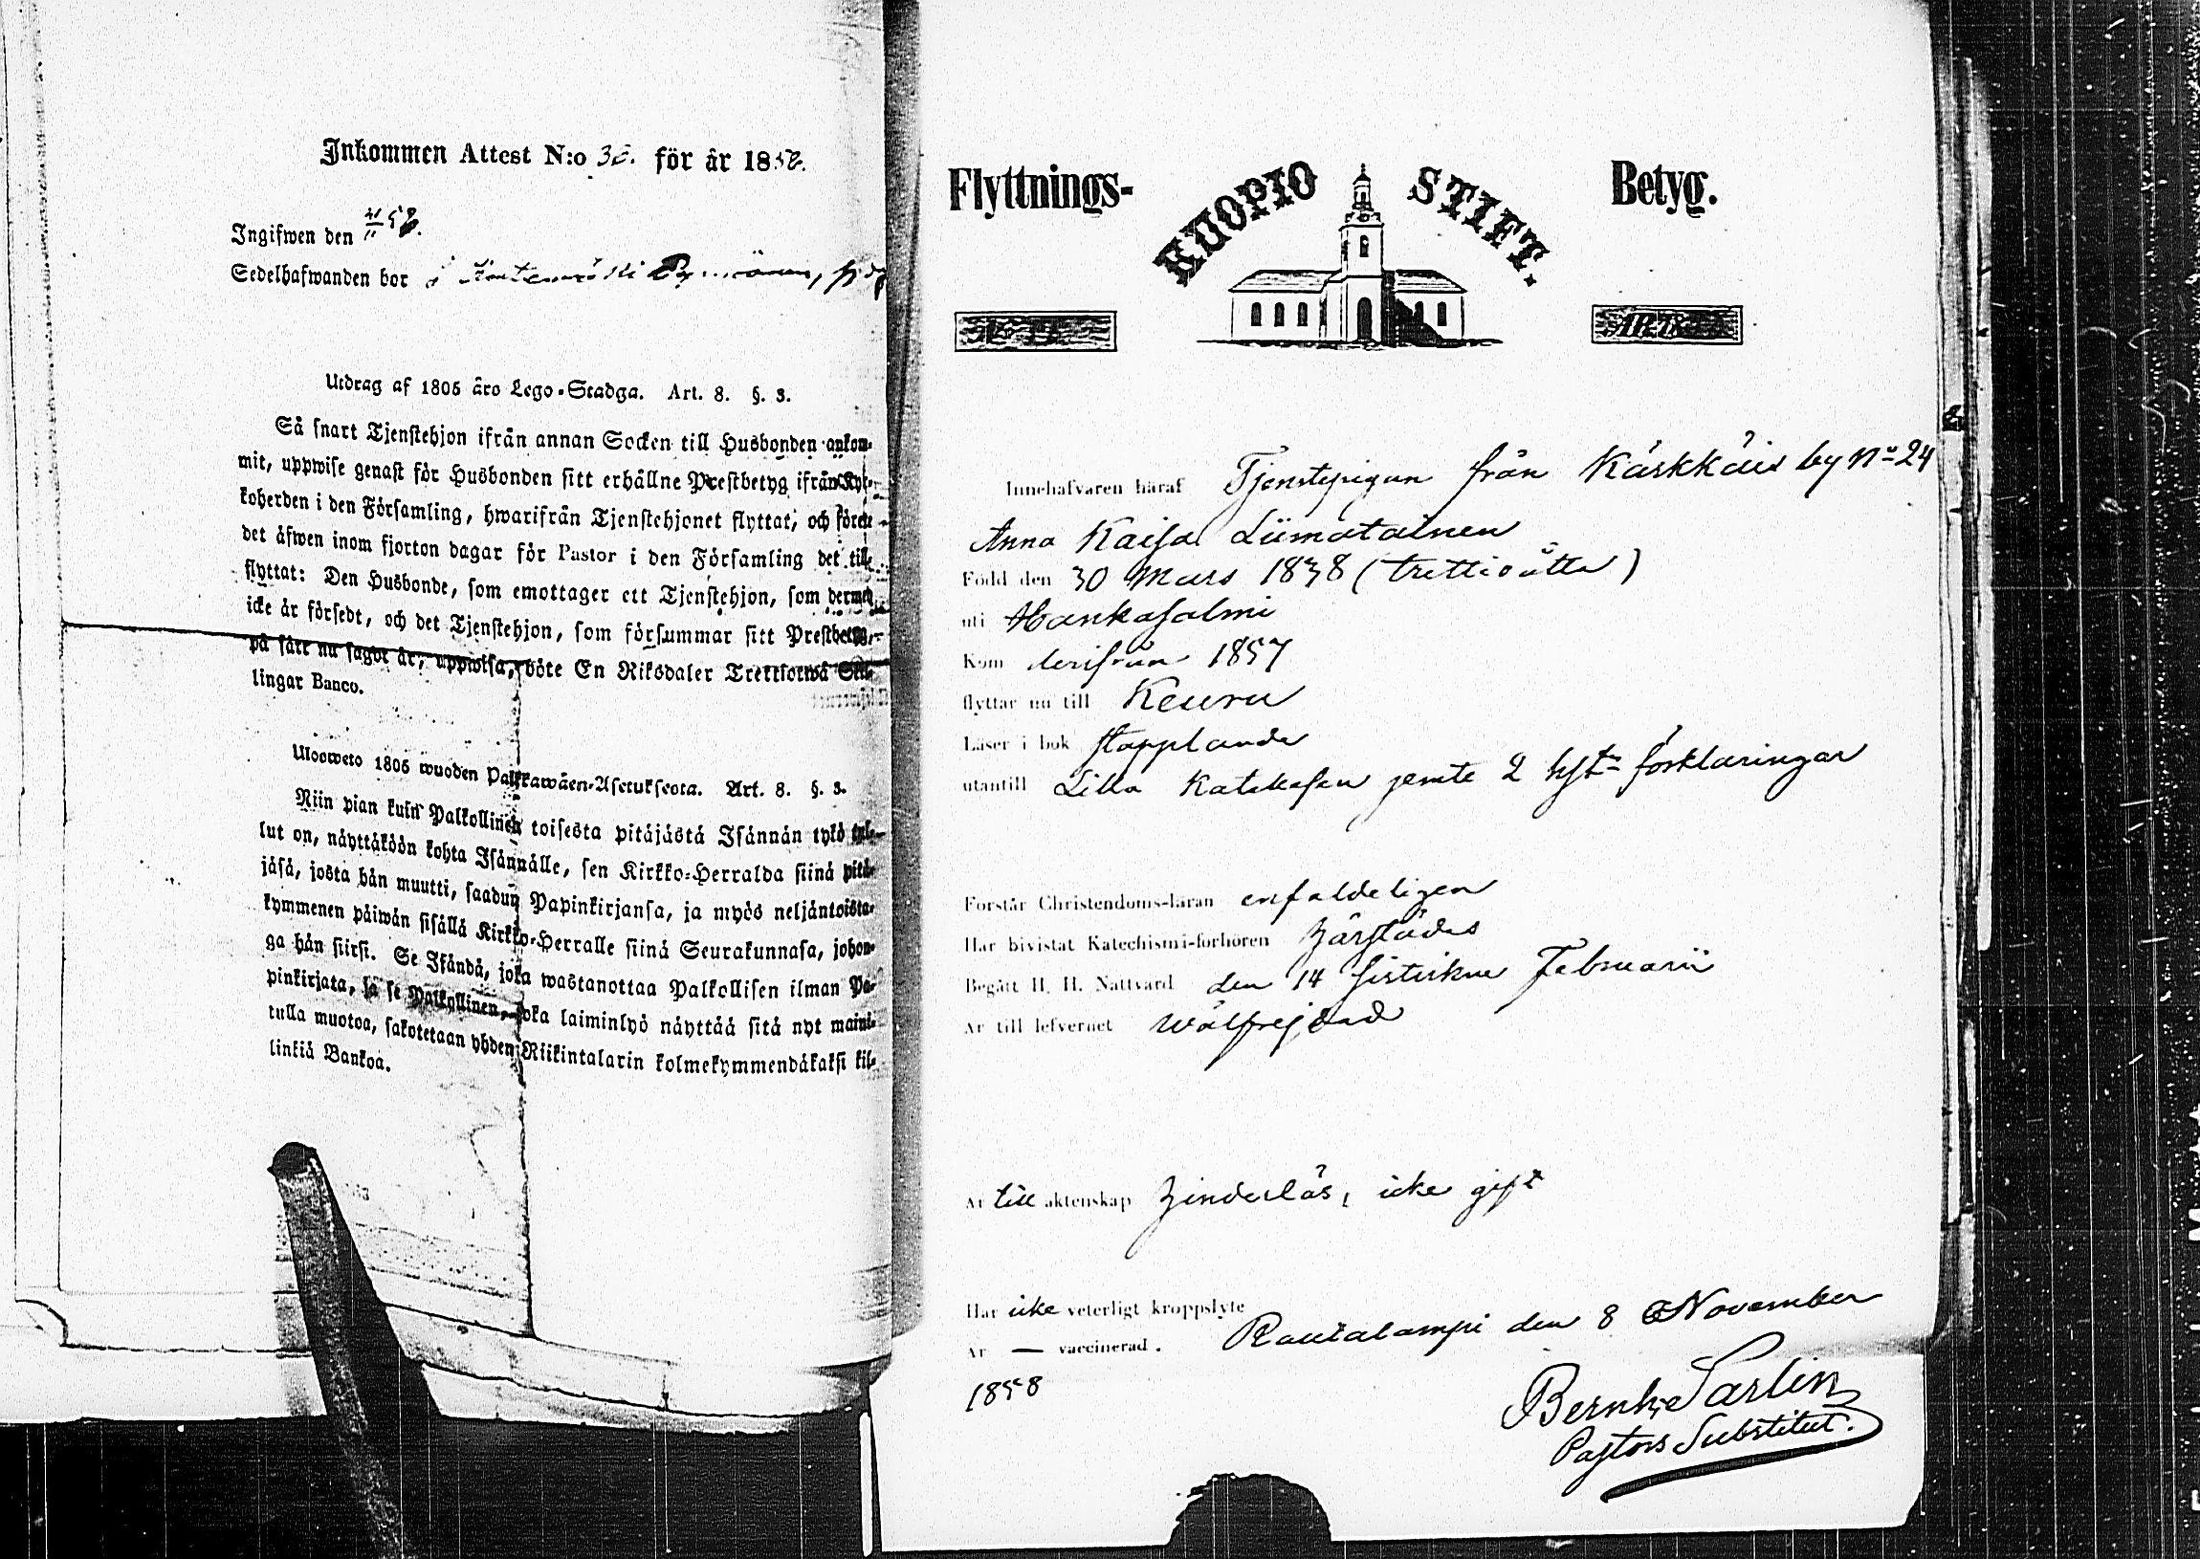 Inkommen Attest N:o för år 1858.
Ingifwen den 58.
Sedelhafwanden bor
Utdrag af 1805 åro Lego-Stadga. Art. 8. §. 3.
Så snart Tjenstehjon ifrån annan Socken till Husbonden ankom-
mit, uppwise genast för Husbonden sitt erhållne Prestbetyg ifrån Kyr-
koherden i den Församling, hwarifrån Tjenstehjonet flyttat, och förete
det åfwen inom fjorton dagar för Pastor i den Församling det till
flyttat: Den Husbonde, som emottager ett Tjenstehjon, som dermed
icke är försedt, och det Tjenstehjon, som försummar sitt Prestbetyg,
på sått nu sagdt är, uppwisa, böte En Riksdaler Trettiotwå Skil-
lingar Banco.
Ulosweto 1805 wuoden Palkkawäen-Asetuksesta. Art. 8. §. 3.
Niin pian kuin Palkollinen toisesta pitäjästä Isännän tykö tul-
lut on, näyttäköön kohta Isännälle, sen Kirkko-Herralda siinä pitä-
jäsä, josta hän muutti, saadun Papinkirjansa, ja myös neljäntoista-
kymmenen päiwän sisällä Kirkko-Herralle siinä Seurakunnasa, johon-
ga hän siirsi. Se Isändä, joka wastanottaa Palkollisen ilman Pa-
pinkirjata, ja se Palkollinen, joka laiminlyö näyttää sitä nyt maini-
tulla muotoa, sakotetaan yhden Riikintalarin kolmekymmendäkaksi kil-
linkiä Bankoa.
Flyttnings- KUOPIO STIFT. Betyg.
Innehafvaren häraf Tjenstepigan från Kärkkäis by No 24
Anna Kaisa Liimatainen
Född den 30 Mars 1838 (trettioåtta)
uti Hankasalmi
Kom derifrån 1857
flyttar nu till Keuru
Läser i bok stapplande
utantill Lilla Katekesen jemte 2 hft förklaringar
Förstår Christendoms-läran enfaldeligen
Har bivistat Katechismi-förhören
Begått H. H. Nattvard den 14 sistvikne Februarii
Är till lefvernet wälfrejdad
Är till äktenskap hinderlös, icke gift
Har icke veterligt kroppslyte
Är — vaccinerad. Rautalampi den 8 November
1858
Bernh. Sarlin
Pastors Substitut.